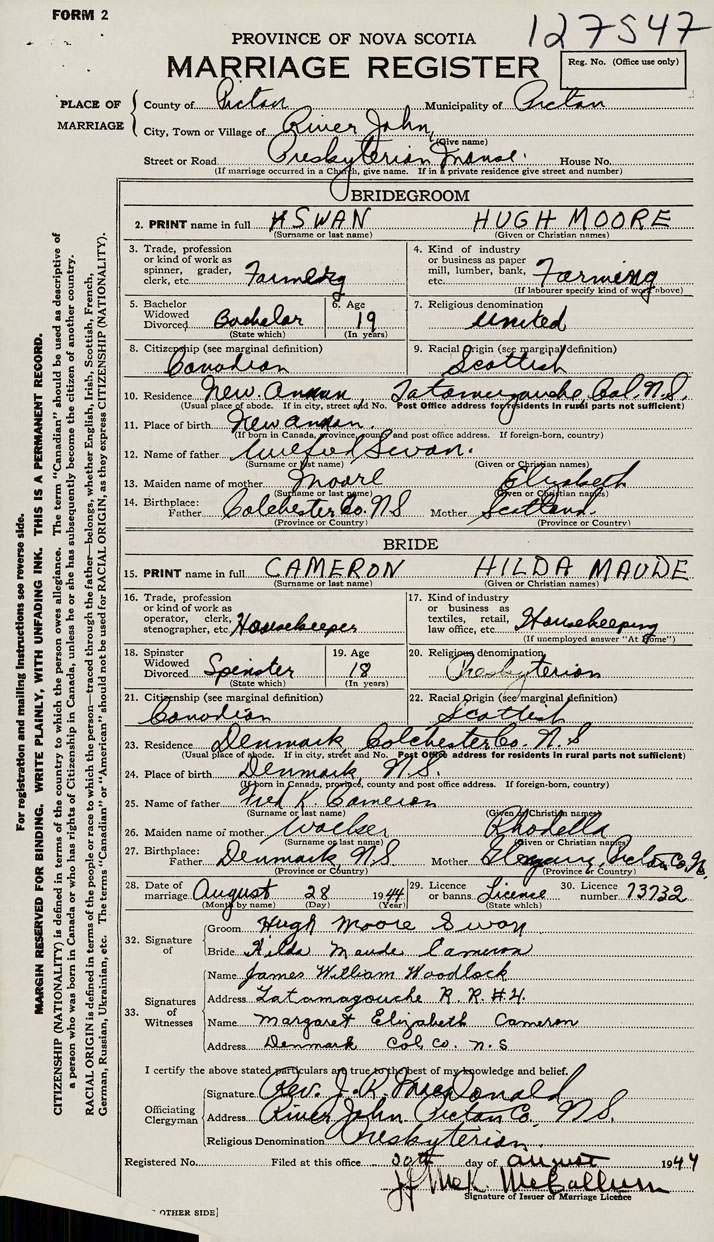 FORM 2
127547
PROVINCE OF NOVA SCOTIA
MARRIAGE REGISTER
Reg. No. (Office use only)
PLACE OF MARRIAGE
County of Pictou Municipality of Pictou
City, Town or Village of River John,
(Give name)
Street or Road Presbyterian Manse. House No.
(If marriage occurred in a Church, give name. If in a private residence give street and number)
BRIDEGROOM
2. PRINT name in full SWAN HUGH MOORE
(Surname or last name) (Given or Christian names)
3. Trade, profession or kind of work as spinner, grader, clerk, etc. Farming
4. Kind of industry or business as paper mill, lumber, bank, etc. Farming
(If labourer specify kind of work above)
5. Bachelor Widowed Divorced Bachelor
(State which)
6. Age 19
(In years)
7. Religious denomination United
8. Citizenship (see marginal definition) Canadian
9. Racial Origin (see marginal definition) Scottish
10. Residence New Annan, Tatamagouche, Col. N.S.
(Usual place of abode. If in city, street and No. Post Office address for residents in rural parts not sufficient)
11. Place of birth New Annan.
(If born in Canada, province, county and post office address. If foreign-born, country)
12. Name of father Wilfred Swan.
(Surname or last name) (Given or Christian names)
13. Maiden name of mother Moore Elizabeth
(Surname or last name) (Given or Christian names)
14. Birthplace: Father Colchester Co. N.S Mother Scotland.
(Province or Country) (Province or Country)
BRIDE
15. PRINT name in full CAMERON HILDA MAUDE
(Surname or last name) (Given or Christian names)
16. Trade, profession or kind of work as operator, clerk, stenographer, etc. Housekeeper
17. Kind of industry or business as textiles, retail, law office, etc. Housekeeping
(If unemployed answer "At Home")
18. Spinster Widowed Divorced Spinster
(State which)
19. Age 18
(In years)
20. Religious denomination Presbyterian
21. Citizenship (see marginal definition) Canadian
22. Racial Origin (see marginal definition) Scottish
23. Residence Denmark, Colchester Co. N.S
(Usual place of abode. If in city, street and No. Post Office address for residents in rural parts not sufficient)
24. Place of birth Denmark, N.S.
(If born in Canada, province, county and post office address. If foreign-born, country)
25. Name of father Fred K. Cameron
(Surname or last name) (Given or Christian names)
26. Maiden name of mother Rhodella
(Surname or last name) (Given or Christian names)
27. Birthplace: Father Denmark, N.S. Mother Pictou Co. N.
(Province or Country) (Province or Country)
28. Date of marriage August 28 1944
(Month by name) (Day) (Year)
29. Licence or banns Licence
(State which)
30. Licence number 73732
32. Signature of
Groom Hugh Moore Swan
Bride Hilda Maude Cameron
33. Signatures of Witnesses
Name James William Woodlock
Address Tatamagouche R. R. #4.
Name Margaret Elizabeth Cameron
Address Denmark Col Co. N.S
I certify the above stated particulars are true to the best of my knowledge and belief.
Officiating Clergyman
Signature Rev. J. R. MacDonald
Address River John Pictou Co. N.S.
Religious Denomination Presbyterian.
Registered No. Filed at this office 20th day of August 1944
J. McK. McCallum
Signature of Issuer of Marriage Licence
OTHER SIDE]
For registration and mailing instructions see reverse side.
MARGIN RESERVED FOR BINDING. WRITE PLAINLY, WITH UNFADING INK. THIS IS A PERMANENT RECORD.
CITIZENSHIP (NATIONALITY) is defined in terms of the country to which the person owes allegiance. The term "Canadian" should be used as descriptive of
a person who was born in Canada or who has rights of Citizenship in Canada, unless he or she has subsequently become the citizen of another country.
RACIAL ORIGIN is defined in terms of the people or race to which the person—traced through the father—belongs, whether English, Irish, Scottish, French,
German, Russian, Ukrainian, etc. The terms "Canadian" or "American" should not be used for RACIAL ORIGIN, as they express CITIZENSHIP (NATIONALITY).